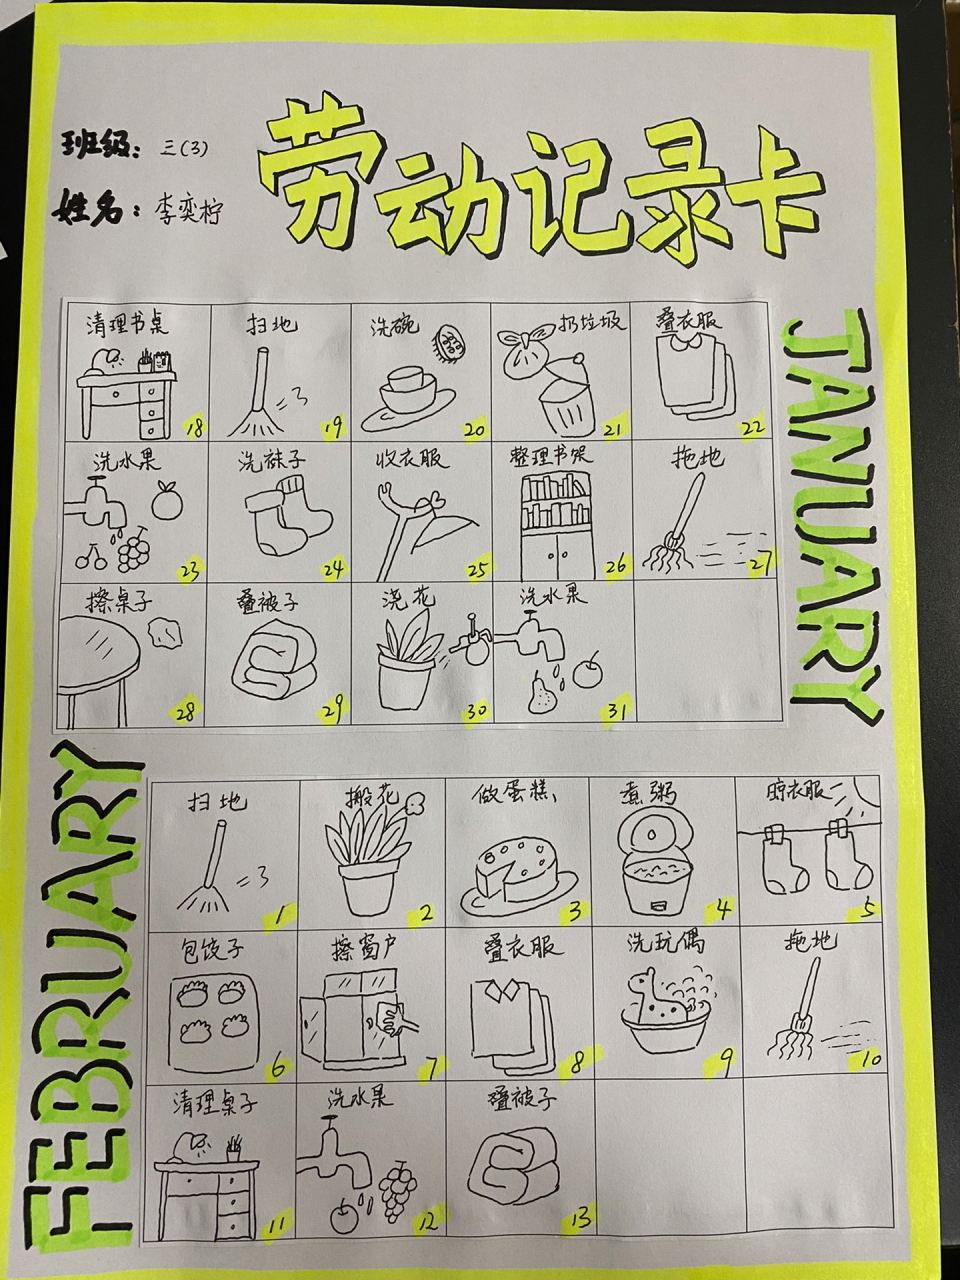 劳动记录卡
班级：三(3)
姓名：李奕柠
JANUARY
清理书桌 18
扫地 19
洗碗 20
扔垃圾 21
叠衣服 22
洗水果 23
洗袜子 24
收衣服 25
整理书架 26
拖地 27
擦桌子 28
叠被子 29
浇花 30
洗水果 31
FEBRUARY
扫地 1
搬花 2
做蛋糕 3
煮粥 4
晾衣服 5
包饺子 6
擦窗户 7
叠衣服 8
洗玩偶 9
拖地 10
清理桌子 11
洗水果 12
叠被子 13